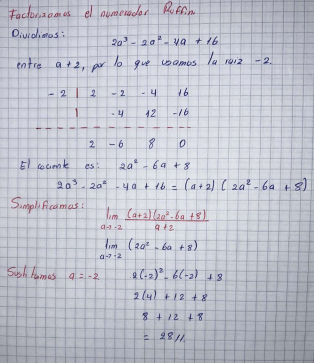 Factorizamos el numerador Ruffini
Dividimos:
2a³ - 2a² - 4a + 16
entre a+2, por lo que usamos la raiz -2.
-2 | 2 -2 -4 16
| -4 12 -16
2 -6 8 0
El cociente es: 2a² - 6a + 8
2a³ - 2a² - 4a + 16 = (a+2) (2a² - 6a + 8)
Simplificamos:
lim a→-2 (a+2)(2a² - 6a + 8) / a+2
lim a→-2 (2a² - 6a + 8)
Sustituimos a = -2 2(-2)² - 6(-2) + 8
2(4) + 12 + 8
8 + 12 + 8
= 28 //